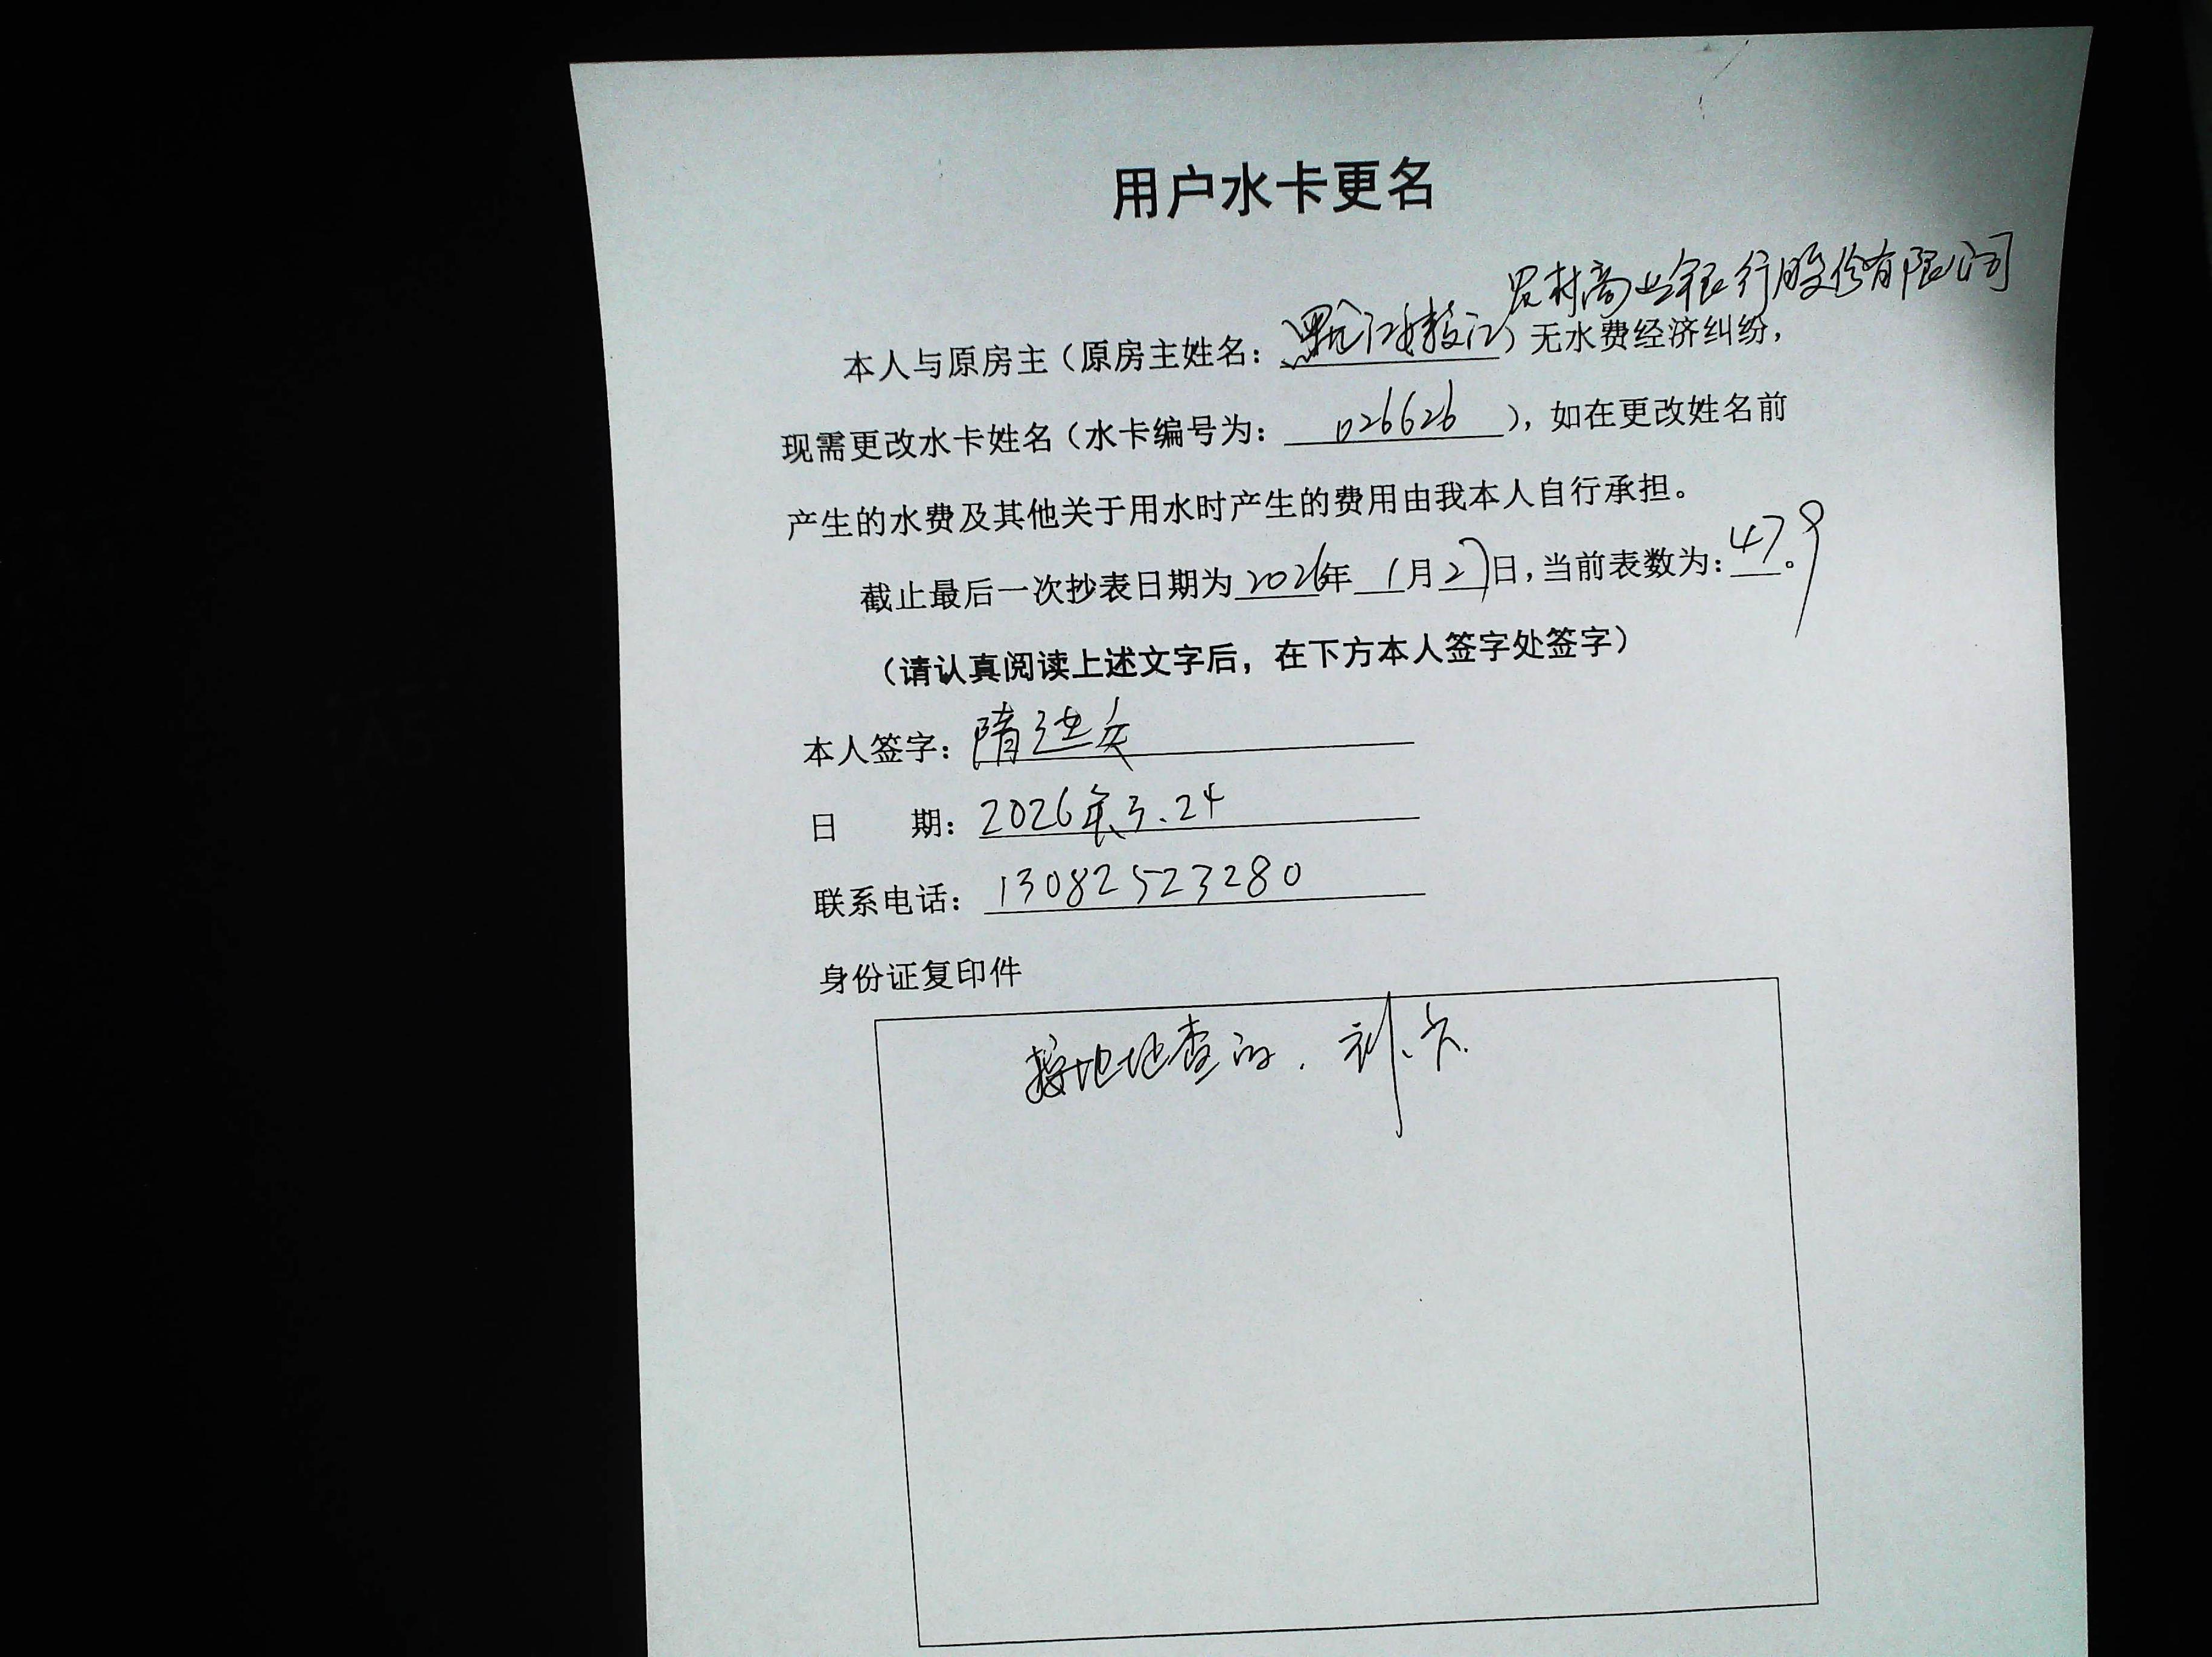 用户水卡更名
农村商业银行股份有限公司
本人与原房主（原房主姓名：黑龙江）无水费经济纠纷，
现需更改水卡姓名（水卡编号为：026626），如在更改姓名前
产生的水费及其他关于用水时产生的费用由我本人自行承担。
截止最后一次抄表日期为2026年1月27日，当前表数为：479。
（请认真阅读上述文字后，在下方本人签字处签字）
本人签字：隋
日期：2026年3.24
联系电话：13082523280
身份证复印件
按地址查的．补卡．